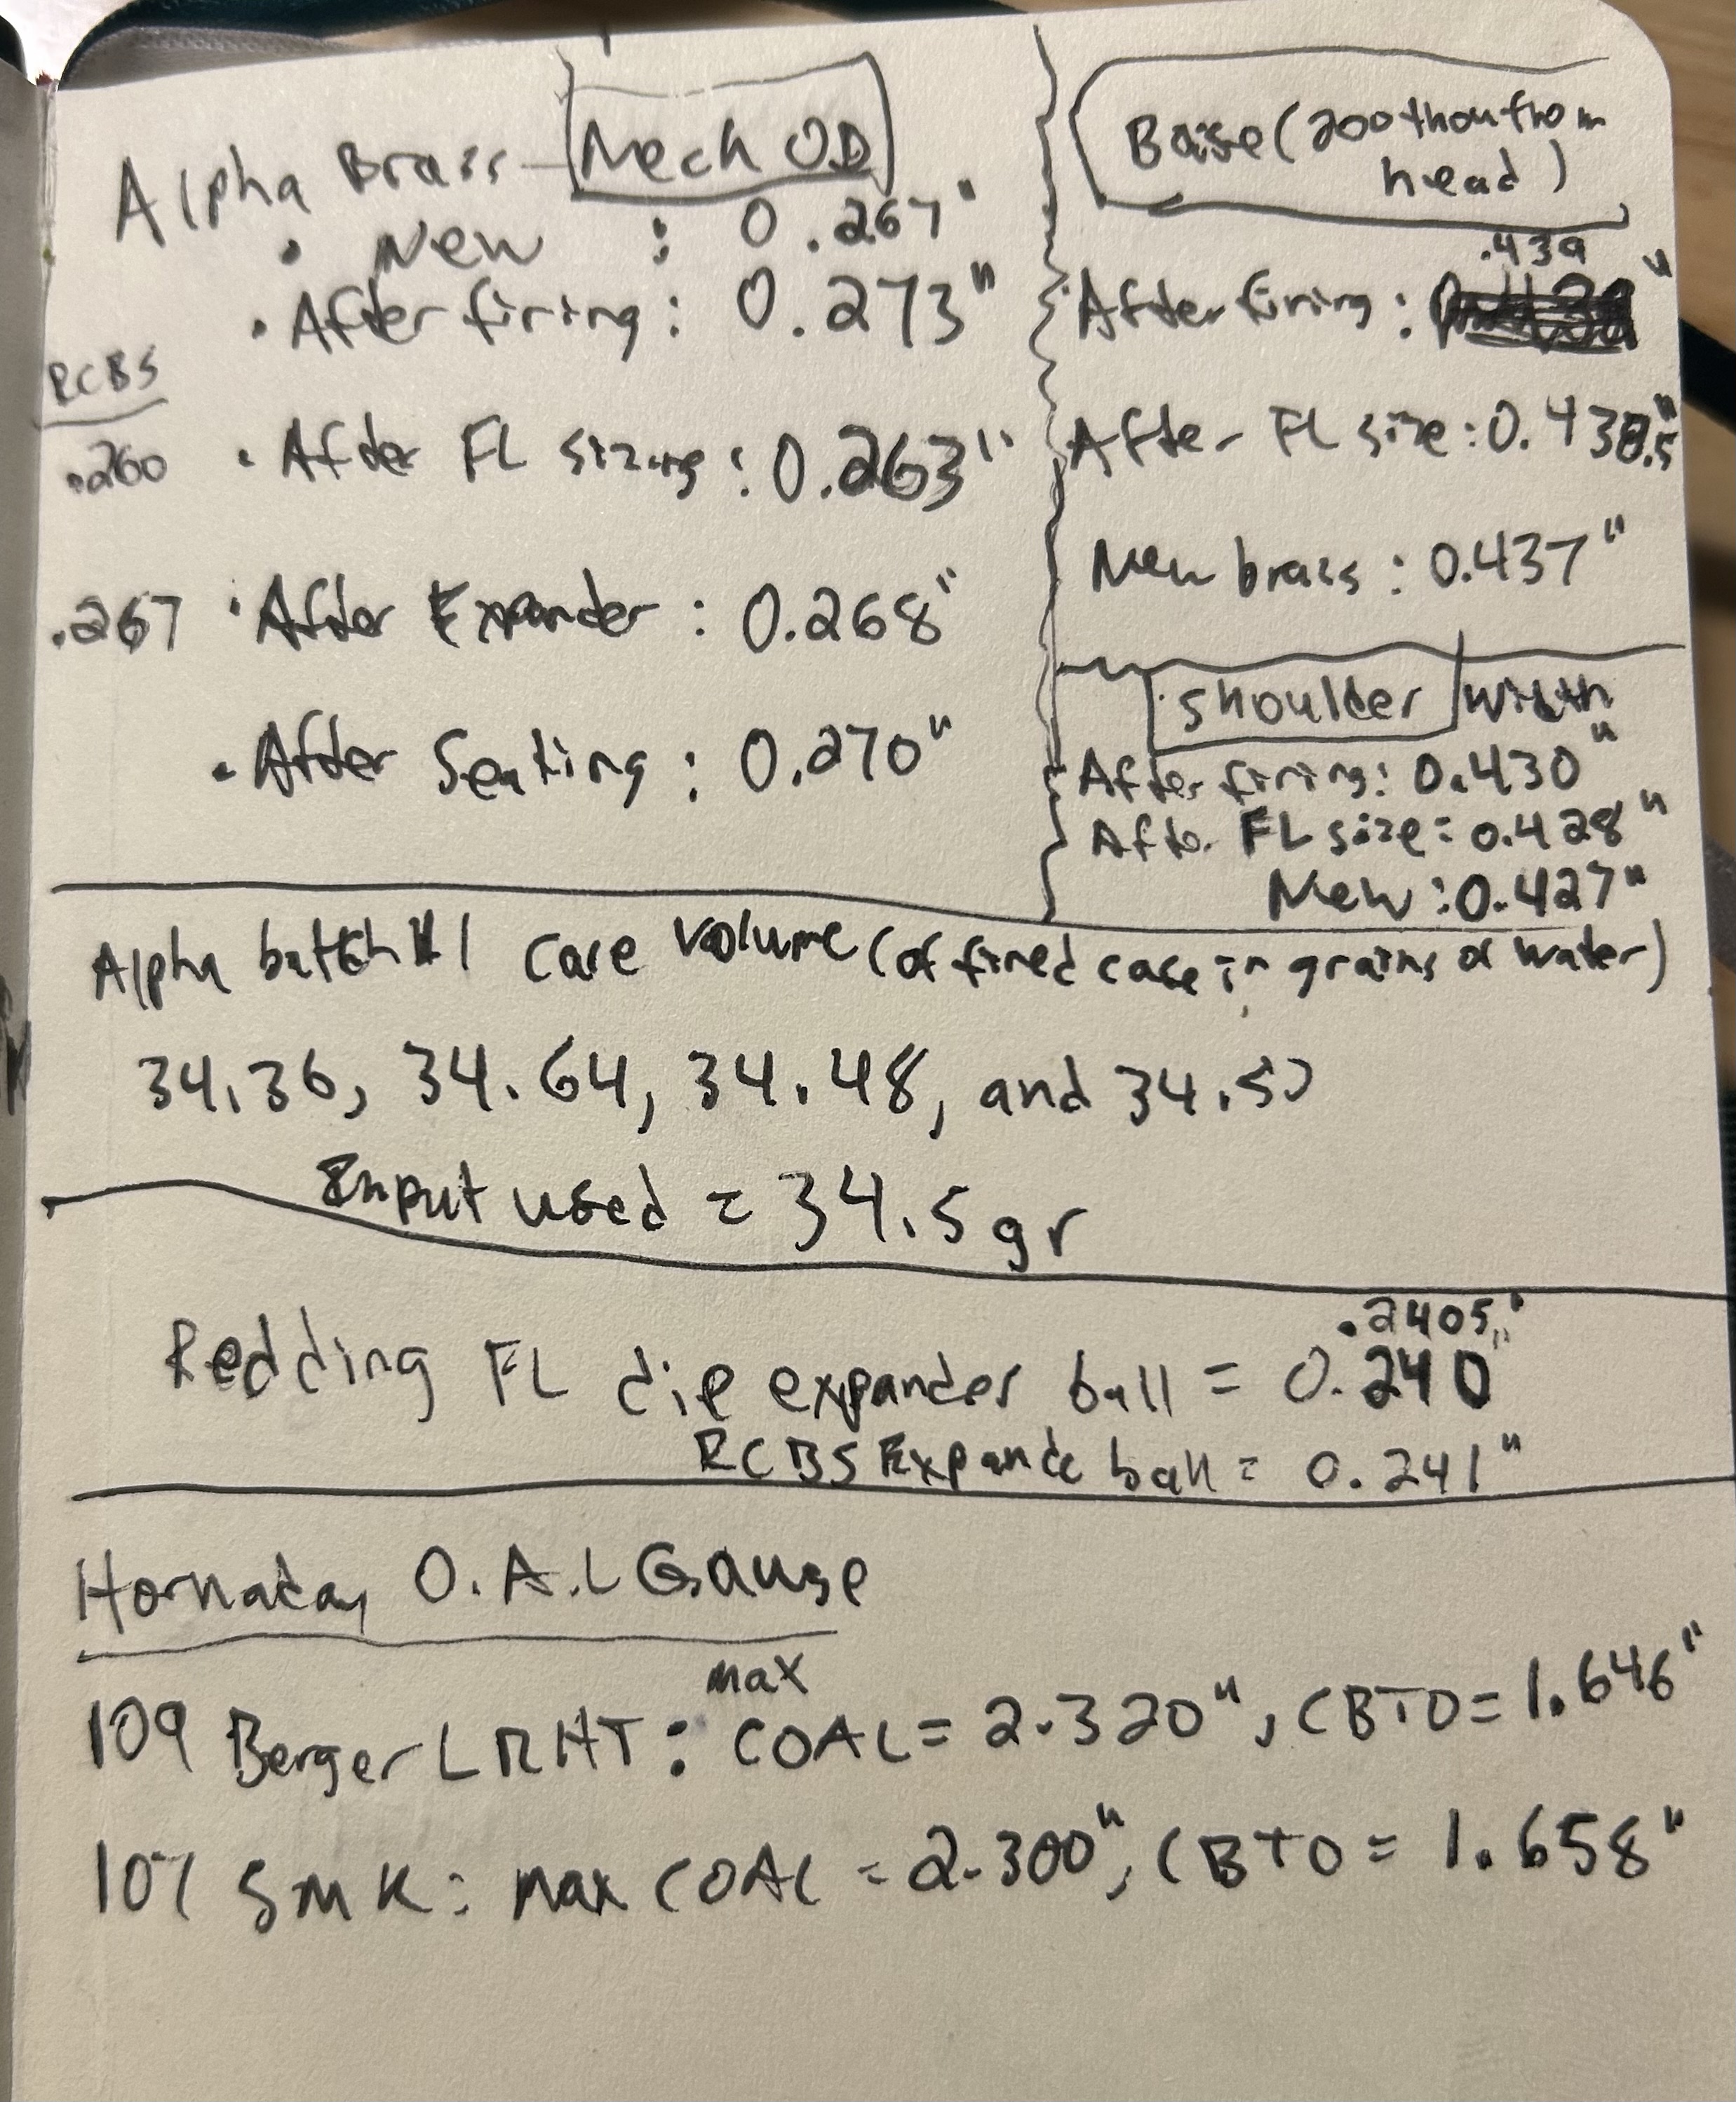 Alpha Brass - Neck OD
• New : 0.267"
• After firing : 0.273"
RCBS
.260 • After FL sizing : 0.263"
.267 • After Expander : 0.268"
• After Seating : 0.270"
Base (200 thou from
head)
.439"
After firing :
After FL size : 0.438.5"
New brass : 0.437"
Shoulder width
After firing : 0.430"
After FL size = 0.428"
New : 0.427"
Alpha batch #1 case volume (of fired case in grains of water)
34.36, 34.64, 34.48, and 34.50
Input used = 34.5 gr
.2405"
Redding FL die expander ball = 0.240"
RCBS Expande ball = 0.241"
Hornaday O.A.L Gauge
max
109 Berger LRHT : COAL = 2.320", CBTO = 1.646"
107 SMK : max COAL = 2.300", CBTO = 1.658"